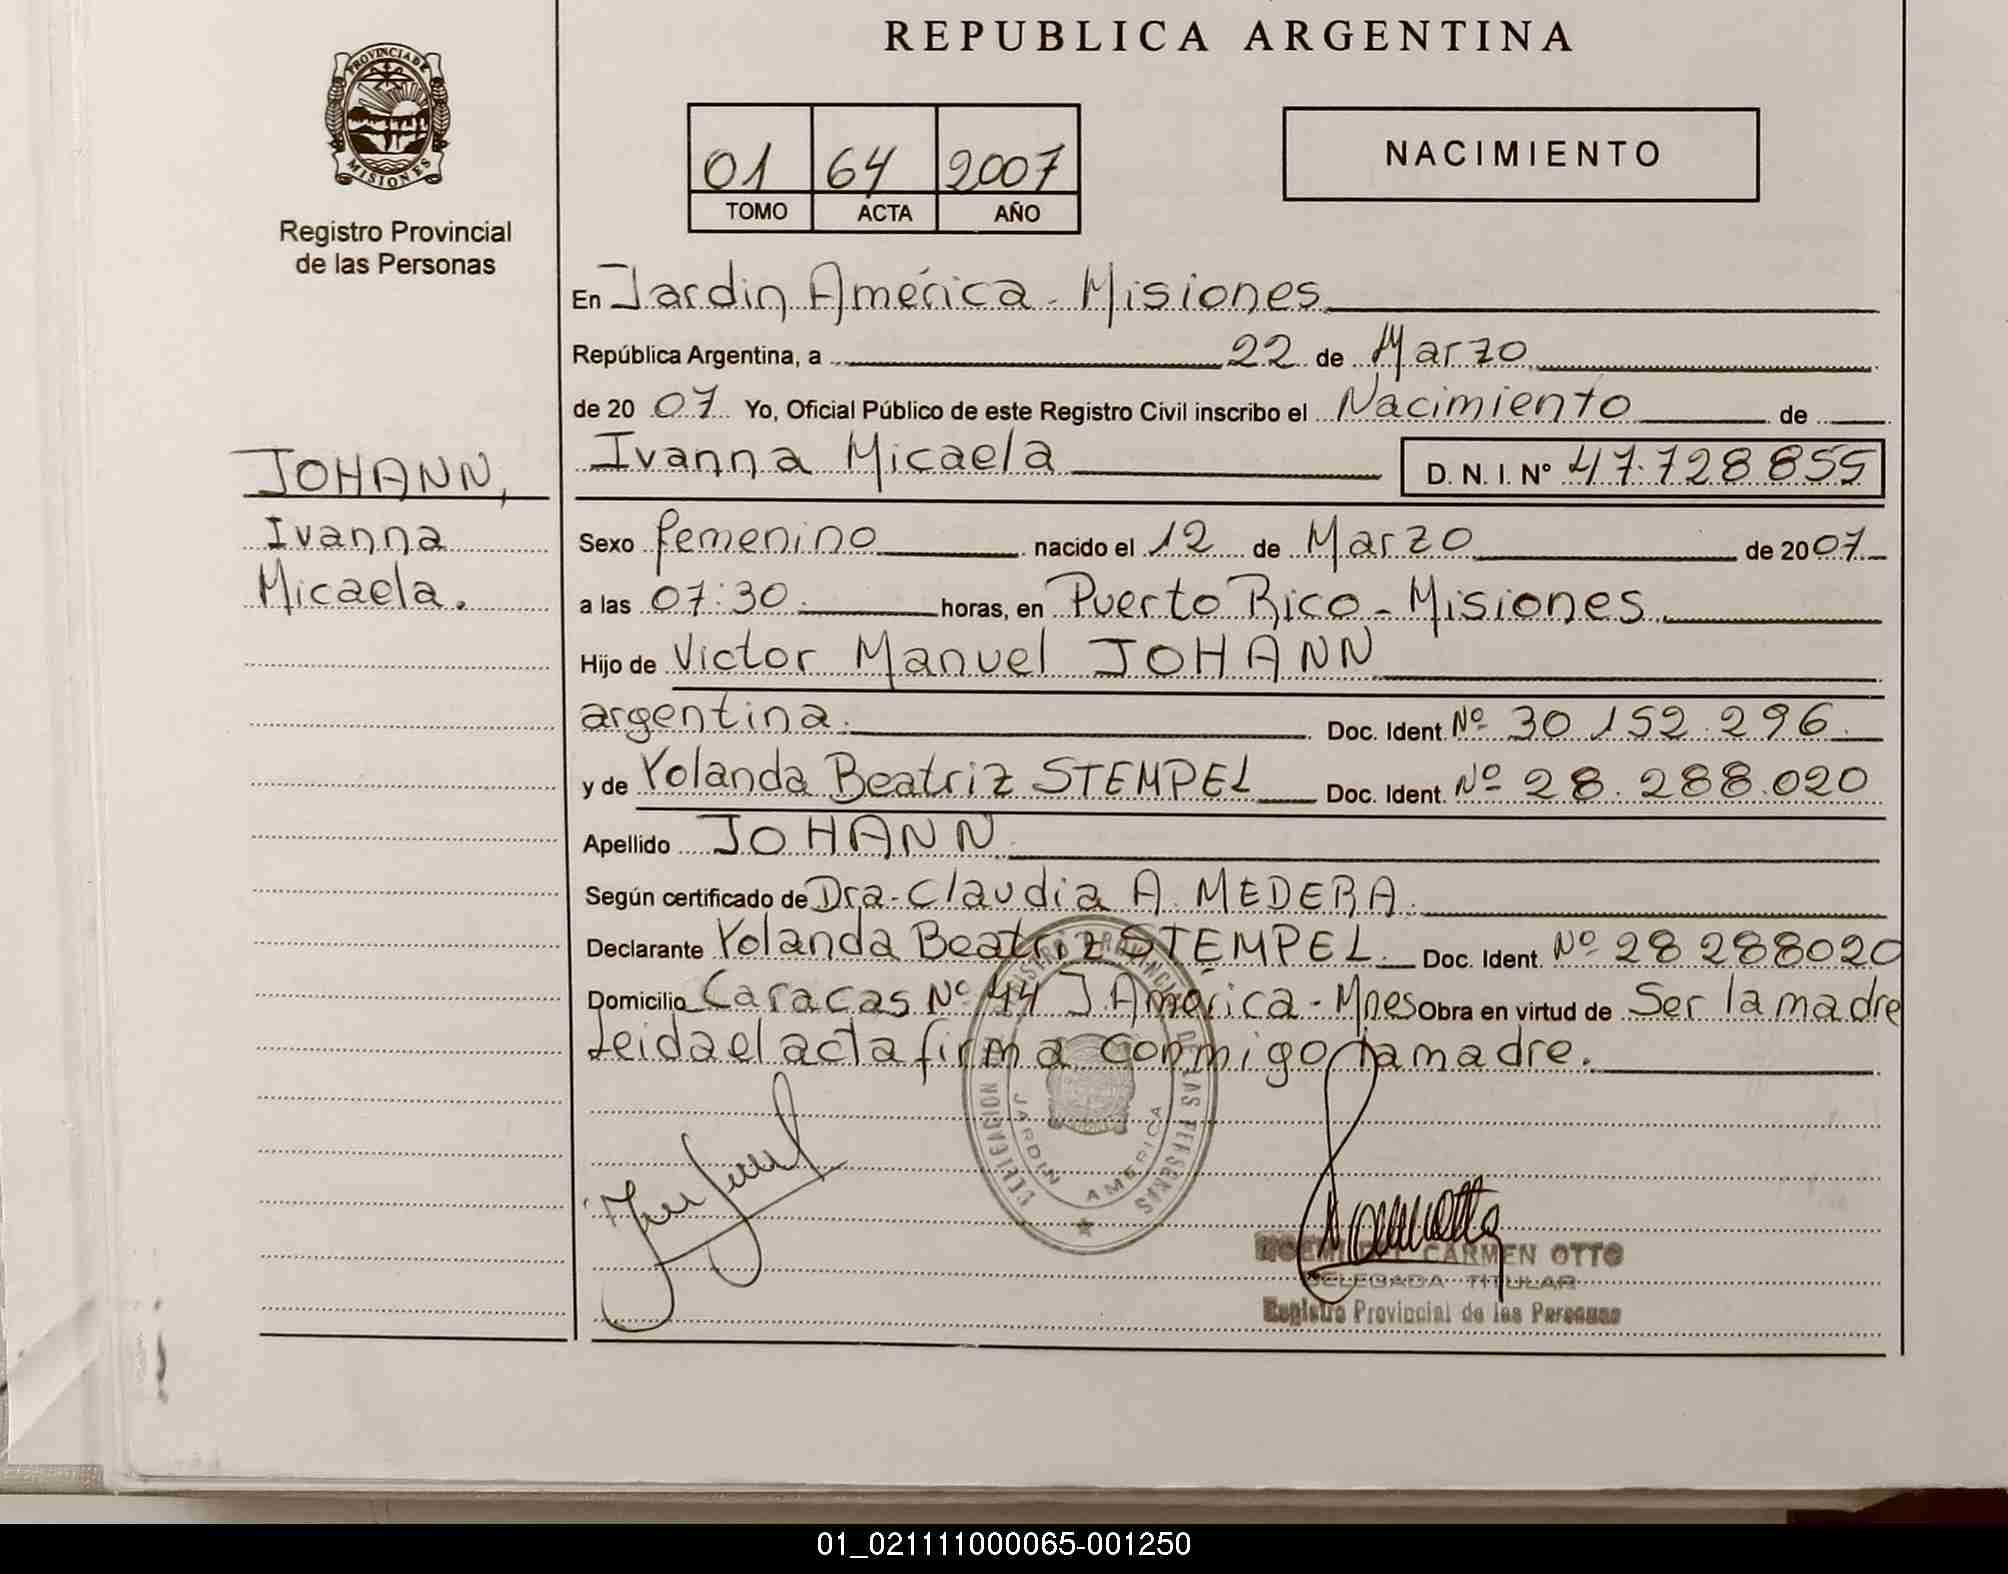 REPUBLICA ARGENTINA
PROVINCIA DE
MISIONES
Registro Provincial
de las Personas
01 64 2007
TOMO ACTA AÑO
NACIMIENTO
En Jardin América - Misiones
República Argentina, a 22 de Marzo
de 20 07 Yo, Oficial Público de este Registro Civil inscribo el Nacimiento de
Ivanna Micaela D. N. I. Nº 47.728855
JOHANN,
Ivanna
Micaela.
Sexo femenino nacido el 12 de Marzo de 2007
a las 07:30 horas, en Puerto Rico - Misiones
Hijo de Victor Manuel JOHANN
argentina. Doc. Ident. Nº 30.152.296
y de Yolanda Beatriz STEMPEL Doc. Ident. Nº 28.288.020
Apellido JOHANN
Según certificado de Dra. Claudia A. MEDERA.
Declarante Yolanda Beatriz STEMPEL Doc. Ident. Nº 28 288020
Domicilio Caracas Nº 44 J. América - Mnes Obra en virtud de Ser la madre
Leida el acta firma conmigo la madre.
JARDIN AMERICA
CARMEN OTTO
DELEGADA TITULAR
Registro Provincial de las Personas
01_021111000065-001250